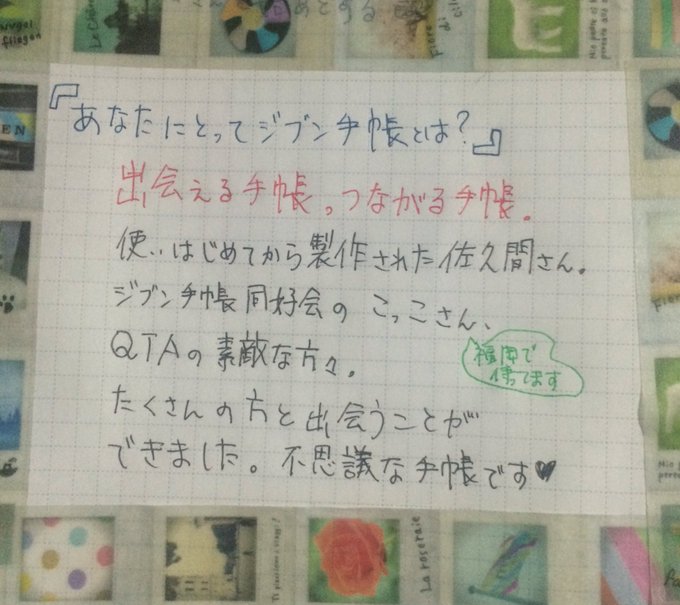 『あなたにとってジブン手帳とは？』
出会える手帳。つながる手帳。
使いはじめてから製作された佐久間さん。
ジブン手帳同好会の こっこさん、
QTAの素敵な方々。
福岡で
待ってます
たくさんの方と出会うことが
できました。不思議な手帳です♥
La roseraie